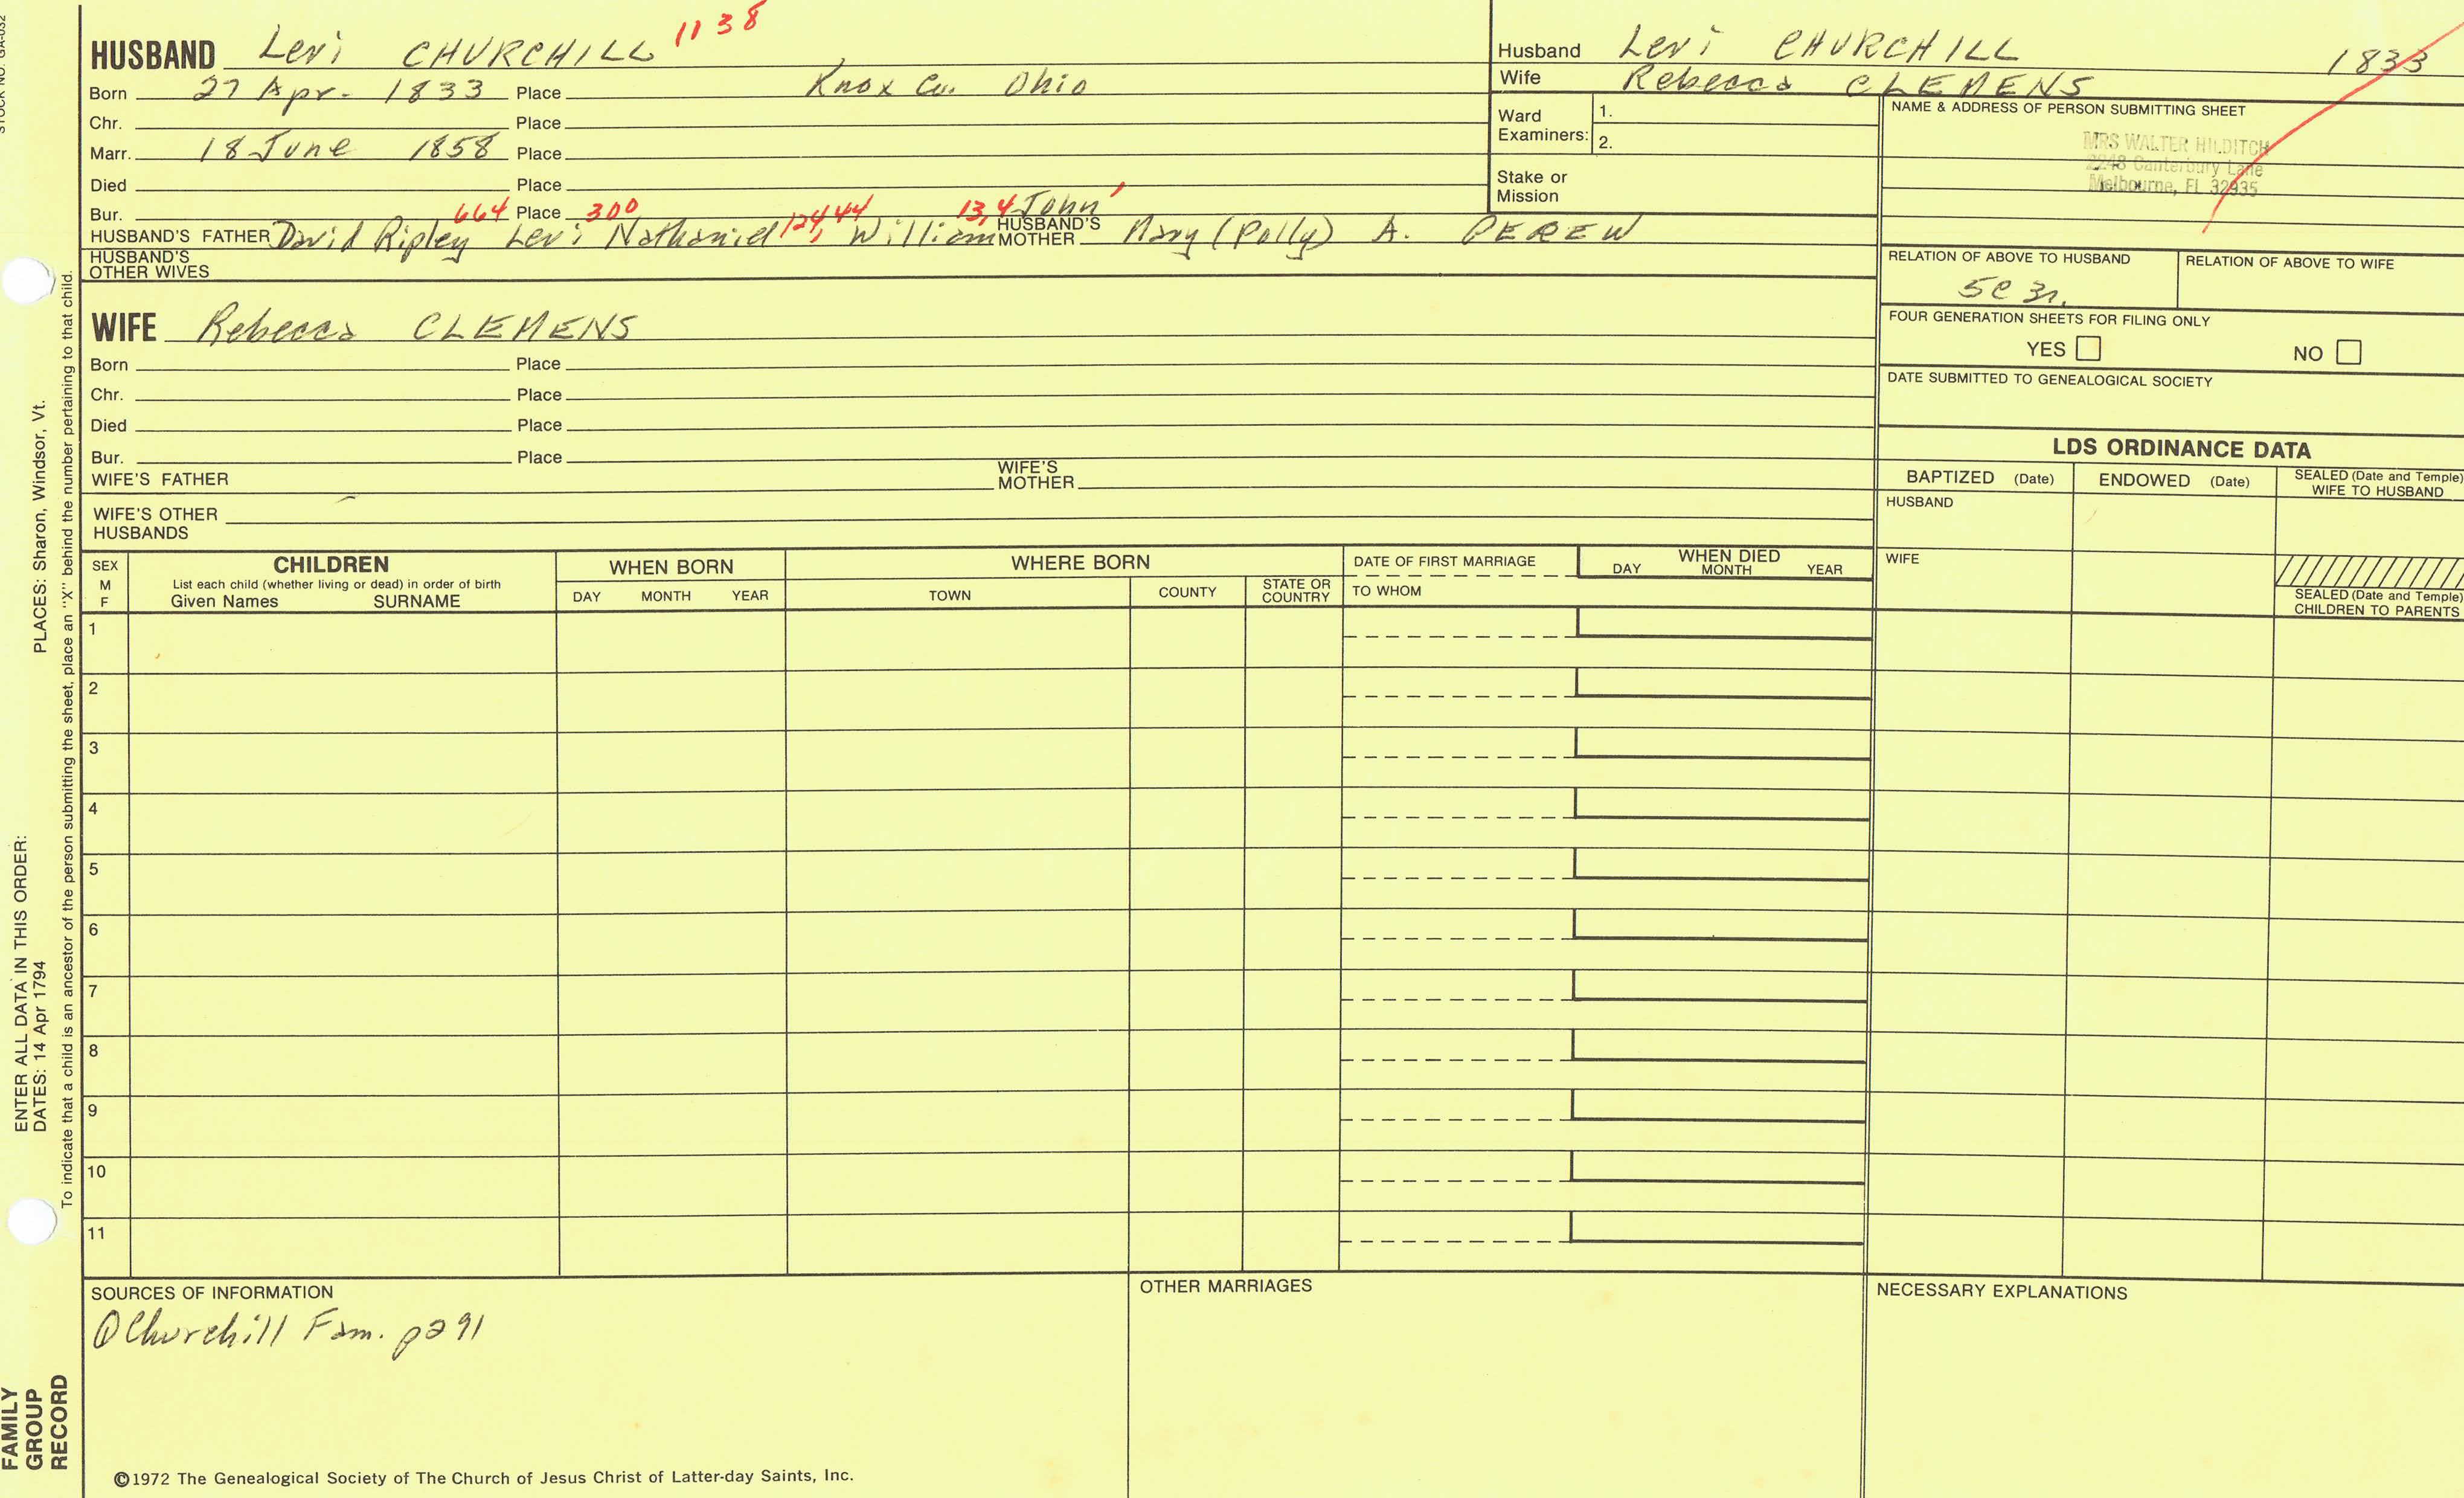 STOCK NO. GA-032
HUSBAND Levi CHURCHILL 1138
Born 27 Apr. 1833 Place Knox Co. Ohio
Chr. Place
Marr. 18 June 1858 Place
Died Place
Bur. Place
HUSBAND'S FATHER David Ripley 664 Levi 300 Nathaniel 124, 44 William 13, 4 John 1 HUSBAND'S MOTHER Mary (Polly) A. PEREW
HUSBAND'S OTHER WIVES
WIFE Rebecca CLEMENS
Born Place
Chr. Place
Died Place
Bur. Place
WIFE'S FATHER WIFE'S MOTHER
WIFE'S OTHER HUSBANDS
Husband Levi CHURCHILL 1833
Wife Rebecca CLEMENS
Ward Examiners: 1.
2.
Stake or Mission
NAME & ADDRESS OF PERSON SUBMITTING SHEET
MRS WALTER HILDITCH
2248 Canterbury Lane
Melbourne, FL 32935
RELATION OF ABOVE TO HUSBAND RELATION OF ABOVE TO WIFE
5c 3r.
FOUR GENERATION SHEETS FOR FILING ONLY
YES NO
DATE SUBMITTED TO GENEALOGICAL SOCIETY
LDS ORDINANCE DATA
BAPTIZED (Date) ENDOWED (Date) SEALED (Date and Temple) WIFE TO HUSBAND
HUSBAND
WIFE
SEALED (Date and Temple) CHILDREN TO PARENTS
SEX M F
CHILDREN
List each child (whether living or dead) in order of birth
Given Names SURNAME
WHEN BORN
DAY MONTH YEAR
WHERE BORN
TOWN COUNTY STATE OR COUNTRY
DATE OF FIRST MARRIAGE
TO WHOM
WHEN DIED
DAY MONTH YEAR
1
2
3
4
5
6
7
8
9
10
11
SOURCES OF INFORMATION
① Churchill Fam. p291
OTHER MARRIAGES
NECESSARY EXPLANATIONS
©1972 The Genealogical Society of The Church of Jesus Christ of Latter-day Saints, Inc.
FAMILY GROUP RECORD
ENTER ALL DATA IN THIS ORDER:
DATES: 14 Apr 1794 PLACES: Sharon, Windsor, Vt.
To indicate that a child is an ancestor of the person submitting the sheet, place an "X" behind the number pertaining to that child.